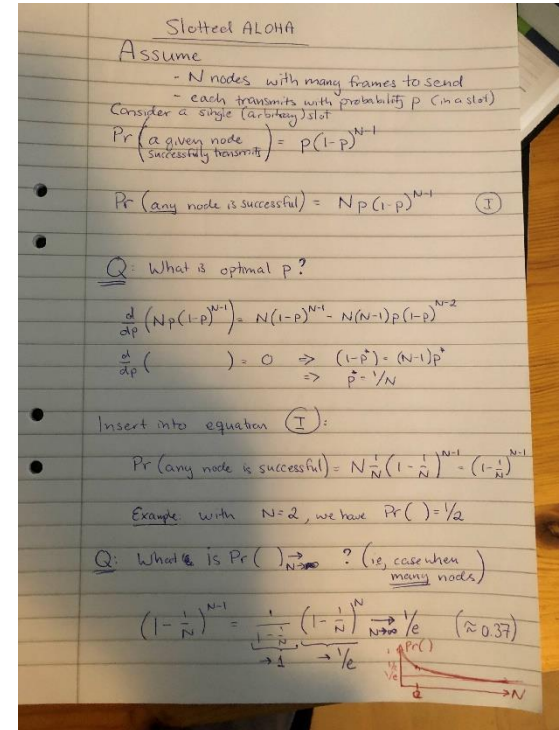 Slotted ALOHA
Assume
- N nodes with many frames to send
- each transmits with probability p (in a slot)
Consider a single (arbitrary) slot
Pr (a given node successfully transmits) = p(1-p)^{N-1}
Pr (any node is successful) = Np(1-p)^{N-1} (I)
Q: What is optimal p?
d/dp (Np(1-p)^{N-1}) = N(1-p)^{N-1} - N(N-1)p(1-p)^{N-2}
d/dp ( ) = 0 ⇒ (1-p*) = (N-1)p*
⇒ p* = 1/N
Insert into equation (I):
Pr (any node is successful) = N 1/N (1 - 1/N)^{N-1} = (1 - 1/N)^{N-1}
Example with N=2, we have Pr( ) = 1/2
Q: What is Pr( ) → N→∞ ? (ie, case when
many nods)
(1 - 1/N)^{N-1} = 1/(1 - 1/N) (1 - 1/N)^N → N→∞ 1/e (≈ 0.37)
→ 1 → 1/e
Pr()
1
1/2
1/e
2
N